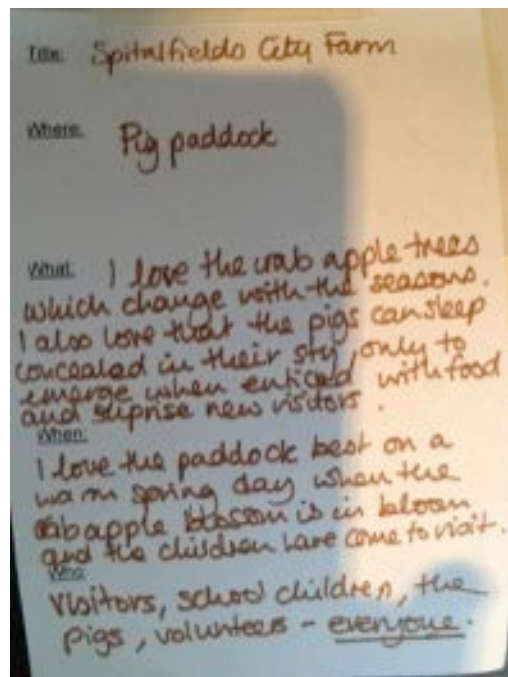 Title: Spitalfields City Farm
Where: Pig paddock
What: I love the crab apple trees
which change with the seasons.
I also love that the pigs can sleep
concealed in their sty, only to
emerge when enticed with food
and suprise new visitors.
When:
I love the paddock best on a
warm spring day when the
crab apple blossom is in bloom
and the children have come to visit.
Who:
Visitors, school children, the
pigs, volunteers - everyone.